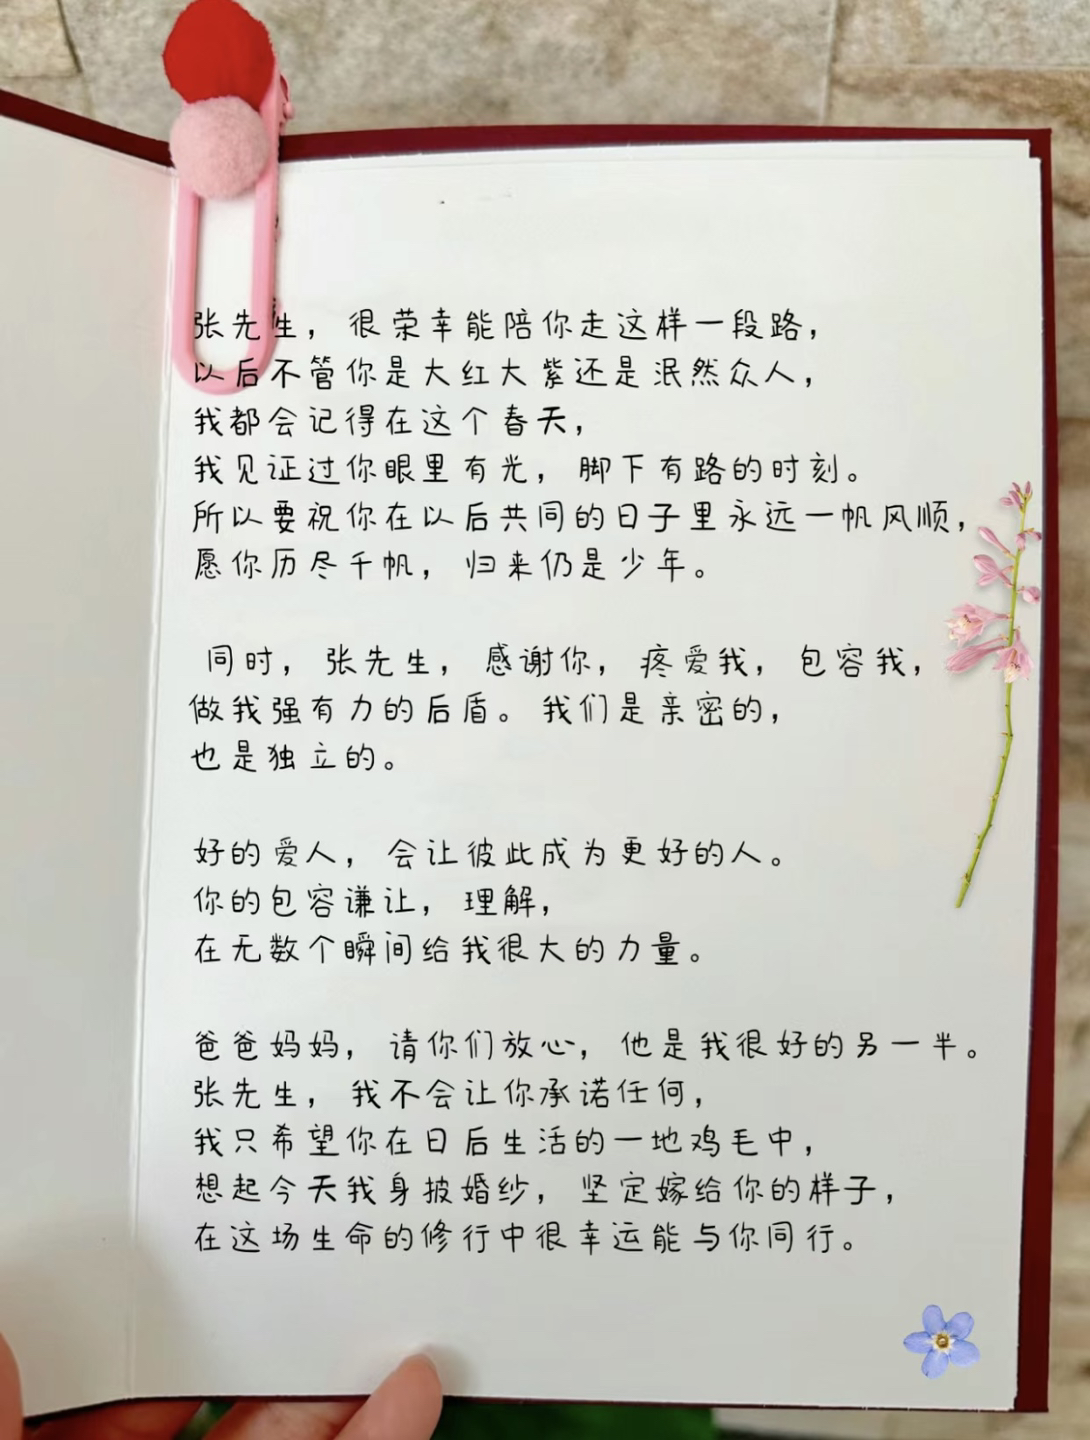 张先生，很荣幸能陪你走这样一段路，
以后不管你是大红大紫还是泯然众人，
我都会记得在这个春天，
我见证过你眼里有光，脚下有路的时刻。
所以要祝你在以后共同的日子里永远一帆风顺，
愿你历尽千帆，归来仍是少年。
同时，张先生，感谢你，疼爱我，包容我，
做我强有力的后盾。我们是亲密的，
也是独立的。
好的爱人，会让彼此成为更好的人。
你的包容谦让，理解，
在无数个瞬间给我很大的力量。
爸爸妈妈，请你们放心，他是我很好的另一半。
张先生，我不会让你承诺任何，
我只希望你在日后生活的一地鸡毛中，
想起今天我身披婚纱，坚定嫁给你的样子，
在这场生命的修行中很幸运能与你同行。